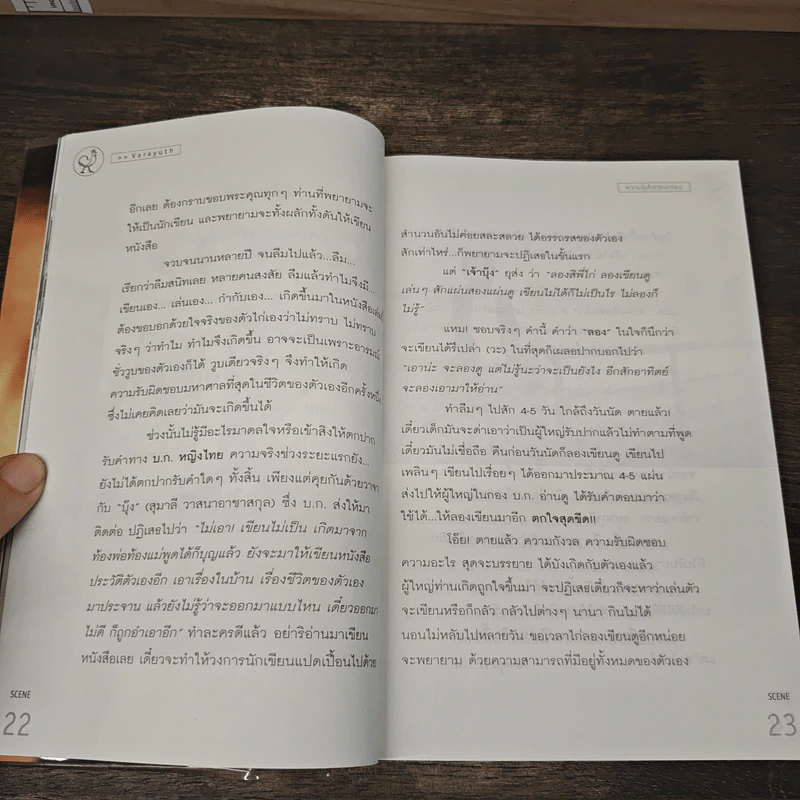 >> Varayuth
อีกเลย ต้องกราบขอบพระคุณทุกๆ ท่านที่พยายามจะ
ให้เป็นนักเขียน และพยายามจะทั้งผลักทั้งดันให้เขียน
หนังสือ
จวบจนนานหลายปี จนลืมไปแล้ว...ลืม...
เรียกว่าลืมสนิทเลย หลายคนสงสัย ลืมแล้วทำไมจึงมี...
เขียนเอง... เล่นเอง... กำกับเอง... เกิดขึ้นมาในหนังสือเล่มนี้
ต้องขอบอกด้วยใจจริงของตัวไก่เองว่าไม่ทราบ ไม่ทราบ
จริงๆ ว่าทำไม ทำไมจึงเกิดขึ้น อาจจะเป็นเพราะอารมณ์
ชั่ววูบของตัวเองก็ได้ วูบเดียวจริงๆ จึงทำให้เกิด
ความรับผิดชอบมหาศาลที่สุดในชีวิตของตัวเองอีกครั้งหนึ่ง
ซึ่งไม่เคยคิดเลยว่ามันจะเกิดขึ้นได้
ช่วงนั้นไม่รู้มีอะไรมาดลใจหรือเข้าสิงให้ตกปาก
รับคำทาง บ.ก. หญิงไทย ความจริงช่วงระยะแรกยัง...
ยังไม่ได้ตกปากรับคำใดๆ ทั้งสิ้น เพียงแต่คุยกันด้วยวาจา
กับ "บุ๊ง" (สุมาลี วาสนาอาชาสกุล) ซึ่ง บ.ก. ส่งให้มา
ติดต่อ ปฏิเสธไปว่า "ไม่เอา! เขียนไม่เป็น เกิดมาจาก
ท้องพ่อท้องแม่พูดได้ก็บุญแล้ว ยังจะมาให้เขียนหนังสือ
ประวัติตัวเองอีก เอาเรื่องในบ้าน เรื่องชีวิตของตัวเอง
มาประจาน แล้วยังไม่รู้ว่าจะออกมาแบบไหน เดี๋ยวออกมา
ไม่ดี ก็ถูกอำเอาอีก" ทำละครดีแล้ว อย่าริอ่านมาเขียน
หนังสือเลย เดี๋ยวจะทำให้วงการนักเขียนแปดเปื้อนไปด้วย
SCENE
22
สำนวนอันไม่ค่อยสละสลวย ได้อรรถรสของตัวเอง
สักเท่าไหร่...ก็พยายามจะปฏิเสธในขั้นแรก
แต่ "เจ้าบุ๊ง" ยุส่ง ว่า "ลองสิพี่ไก่ ลองเขียนดู
เล่นๆ สักแผ่นสองแผ่นดู เขียนไม่ได้ก็ไม่เป็นไร ไม่ลองก็
ไม่รู้"
แหม! ชอบจริงๆ คำนี้ คำว่า "ลอง" ในใจก็นึกว่า
จะเขียนได้รึเปล่า (วะ) ในที่สุดก็เผลอปากบอกไปว่า
"เอาน่ะ จะลองดู แต่ไม่รู้นะว่าจะเป็นยังไง อีกสักอาทิตย์
จะลองเอามาให้อ่าน"
ทำลืมๆ ไปสัก 4-5 วัน ใกล้ถึงวันนัด ตายแล้ว!
เดี๋ยวเด็กมันจะด่าเอาว่าเป็นผู้ใหญ่รับปากแล้วไม่ทำตามที่พูด
เดี๋ยวมันไม่เชื่อถือ คืนก่อนวันนัดก็ลองเขียนดู เขียนไป
เพลินๆ เขียนไปเรื่อยๆ ได้ออกมาประมาณ 4-5 แผ่น
ส่งไปให้ผู้ใหญ่ในกอง บ.ก. อ่านดู ได้รับคำตอบมาว่า
ใช้ได้...ให้ลองเขียนมาอีก ตกใจสุดขีด!!
โอ๊ย! ตายแล้ว ความกังวล ความรับผิดชอบ
ความอะไร สุดจะบรรยาย ได้บังเกิดกับตัวเองแล้ว
ผู้ใหญ่ท่านเกิดถูกใจขึ้นมา จะปฏิเสธเดี๋ยวก็จะหาว่าเล่นตัว
จะเขียนหรือก็กลัว กลัวไปต่างๆ นานา กินไม่ได้
นอนไม่หลับไปหลายวัน ขอเวลาไก่ลองเขียนดูอีกหน่อย
จะพยายาม ด้วยความสามารถที่มีอยู่ทั้งหมดของตัวเอง
SCENE
23